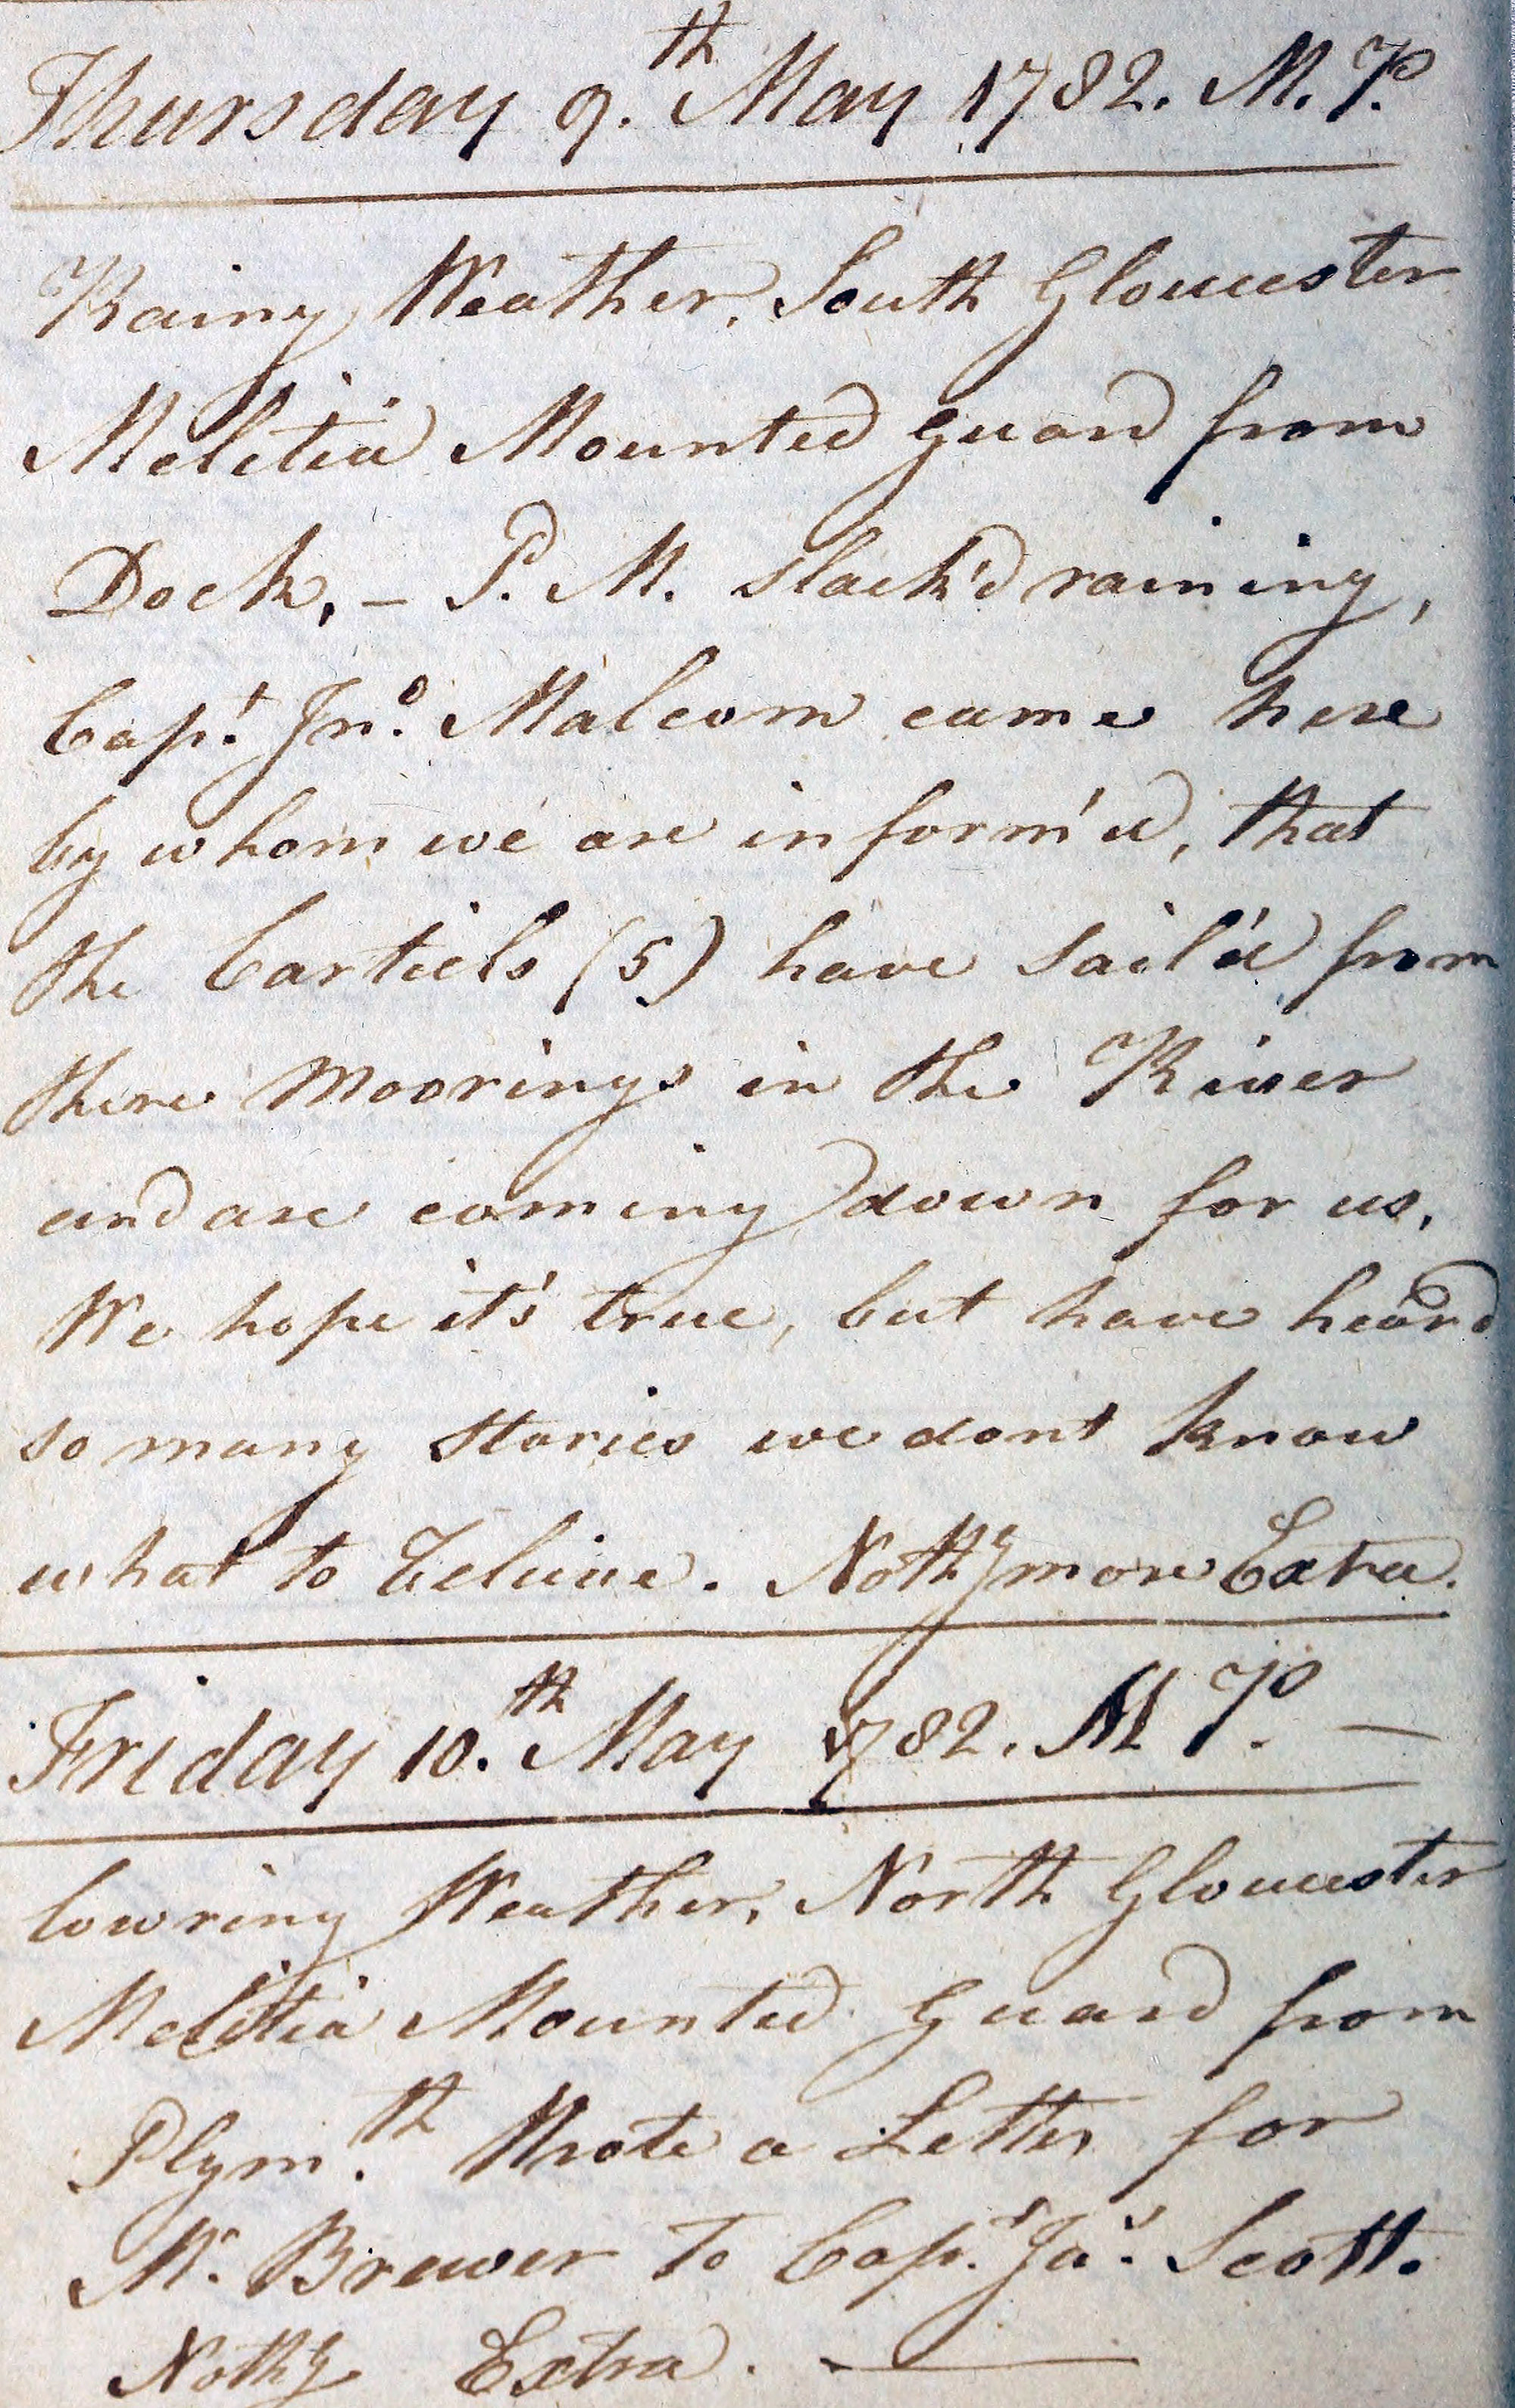 Thursday 9.th May 1782. M. P.
Rainy Weather, South Gloucester
Melitia Mounted guard from
Dock, – P. M. slack'd raining,
Capt. Jno. Malcom came here
by whom we are inform'd, that
the Carteels (5) have sail'd from
there Moorings in the River
and are coming down for us.
We hope it's true, but have heard
so many stories we dont know
what to believe. Nothg more Extra.
Friday 10.th May 1782. M P. —
lowring Weather, North Gloucester
Melitia Mounted Guard from
Plym.th Wrote a Letter for
Mr. Brewer to Capt. Jas. Scott.
Nothg Extra. —